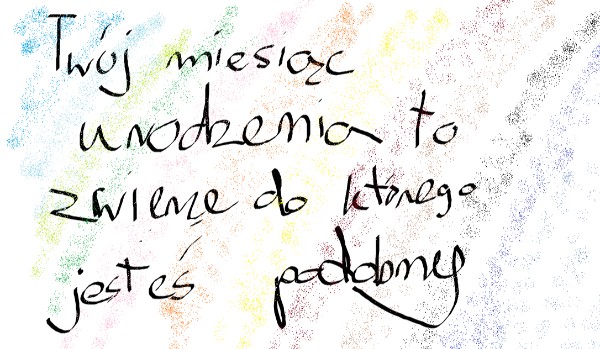 Twój miesiąc
urodzenia to
zwierzę do którego
jesteś podobny